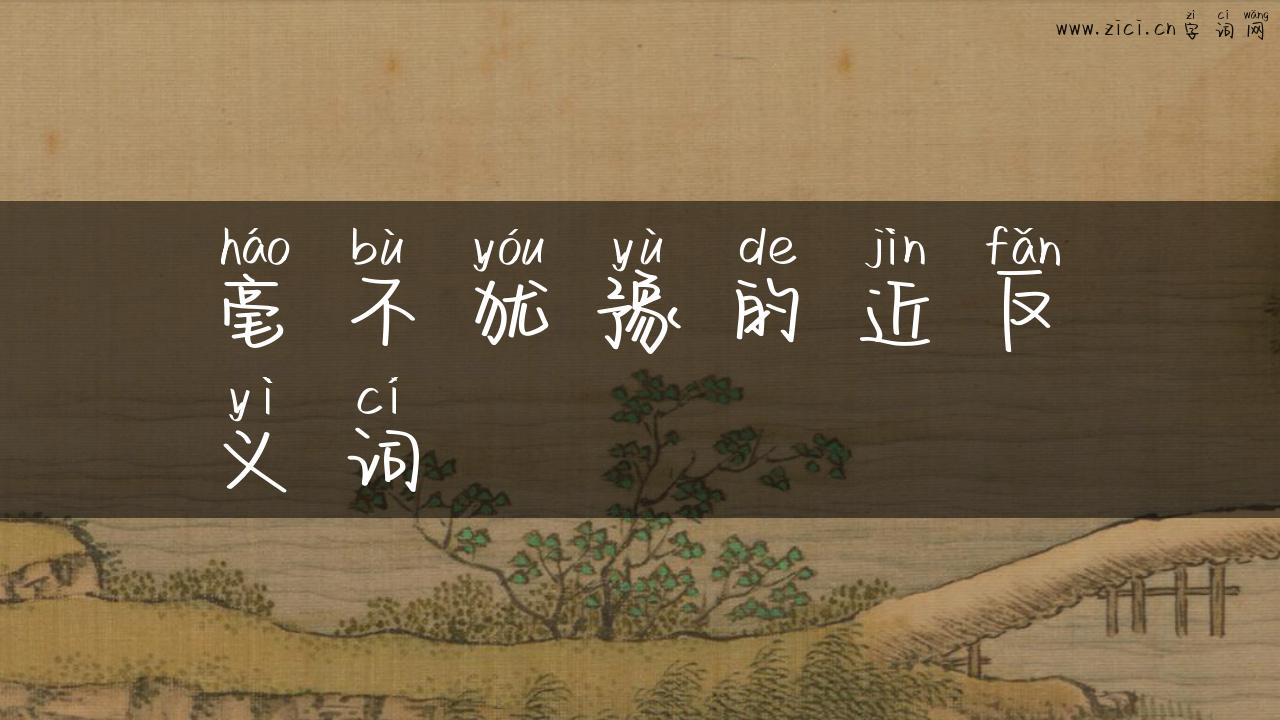 zì cí wǎng
www.zici.cn字词网
háo bù yóu yù de jìn fǎn
毫不犹豫的近反
yì cí
义词